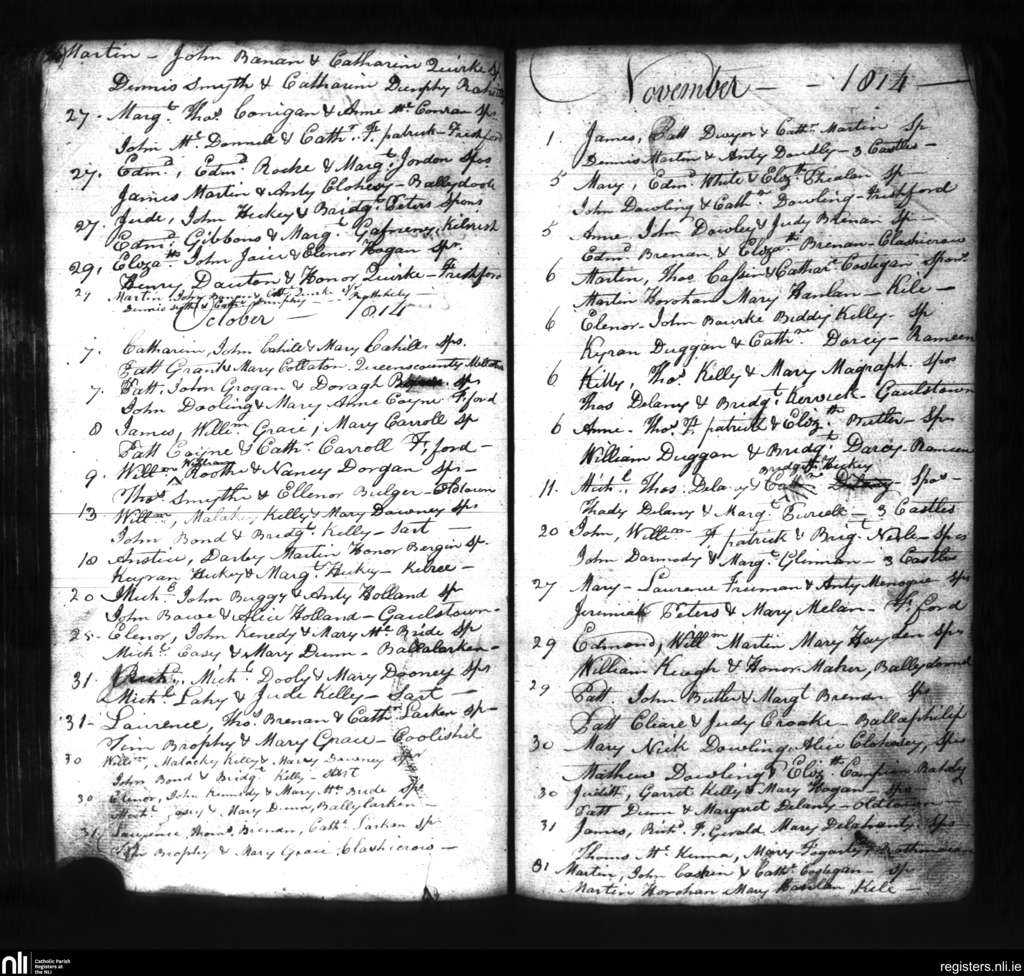 Martin - John Banan & Catharin Quirke Sp
Dennis Smyth & Catharin Dunphy
27. Margt. Thos. Conigan & Anne Mc. Conran Sps
John Mc. Donnell & Cathr. Ft. patrick - Freshford
27. Edmd., Edmd. Roche & Margt. Jordon Spos
James Martin & Anty Clohesy - Ballydoole
27. Jude, John Hickey & Bridgt. Peters Spons
Edmd. Gibbons & Margt. Gafneney Kilrush
29, Elozath. John Jaice & Elenor Hogan Spr.
Henry Dauton & Honor Quirke - Freshford
27 Martin John Banan Cath Quirke Sp
Dennis Smyth & Cath Dunphy
October - 1814
7. Catharin, John Cahill & Mary Cahill Sps.
Patt Grant & Mary Collaton Queenscounty
7. Patt, John Grogan & Doragh sps
John Dooling & Mary Anne Coyne Fford
8 James, Willm. Grace, Mary Carroll Sp
Patt Coyne & Cathr. Carroll F. ford -
9. Willm. William Roothe & Nancy Dorgan Sps -
Thos. Smythe & Ellenor Bulger - Oldtown
13 Willam, Malachy Kelly & Mary Dawney Sps
John Bond & Bridgt. Kelly - Sart -
18 Anstice, Darley Martin Honor Bergin Sp.
Kyran Hickey & Margt. Hickey - Kilree -
20 Mich. John Buggy & Anty Holland Sp
John Bawe & Alice Holland - Gaulstown -
25. Elenor, John Kenedy & Mary Mc. Bride Sp
Michl. Casy & Mary Dunn - Ballalarken -
31. Mich. Michl. Dooly & Mary Dooney Sps
Michl. Lahy & Jude Kelly - Sart -
31 - Laurence, Thos. Brenan & Cathr. Larken Sp -
Tim Brophy & Mary Grace - Coolishil
30 Willm, Malachy Kelly & Mary Dawney Spr
John Bond & Bridgt. Kelly - Sart
30 Elenor, John Kennedy & Mary Mc Bride Sps
Michl. Casey & Mary Dunn, Ballylarken -
31 Laurence, Thoms. Brenan, Cathr. Larken Sp
Tim Brophy & Mary Grace, Clashicrow -
November - - 1814 -
1. James, Patt Dwyer & Cathr. Martin Sp
Dennis Martin & Anty Dowdly - 3 Castles -
5 Mary, Edmd. White & Elozth. Phealan Sp -
John Dowling & Cath. Dowling - Freshford
5 Anne, John Dowley & Judy Brenan Sp -
Edmd. Brenan, & Elozath. Brenan - Clashicrow
6 Marten, Thos Casien & Cathar. Costigan Spons
Martin Horohan Mary Hanlan - Kile -
6 Elenor. John Bourke Biddy Kelly. Sp
Kyran Duggan & Cathne. Darcy - Rameen
6 Kitty, Thos. Kelly & Mary Magraph. Spos
Thos Delany & Bridgt. Kerwick - Gaulstown
6 Anne. Thos. Ft. patrick & Elozth. Butler - Sps
William Duggan & Bridgt. Darcy - Rameen
Bridgt. Hickey
11. Michl. Thos. Delany & Cathr. Delany - Spos -
Thady Delany & Margt. Purcell - 3 Castles
20 John, Willam. Ft patrick & Brigt. Neile - Spos
John Darmody & Margt. Glinnan - 3 Castles
27 Mary - Laurence Freeman & Anty Menogue Sps
Jeremiah Peters & Mary Melan - F. ford
29 Edmond, Willm Martin Mary Hayden Sps
William Keugh & Honor Maher, Ballydound
29 Patt John Butler & Margt Brenan Sps
Patt Cleare & Judy Croake - Ballaphilip
30 Mary Nick Dowling, Alice Clohesey, Sps
Mathew Dowling & Elozth. Campium
30 Judith, Garret Kelly & Mary Hogan - Sps
Patt Dunn & Margaret Delany - Oldtown -
31 James, Richd. F. Gerald Mary Delahunty. Sps
Thoms Mc. Kenna, Mary Fogarty,
31 Martin, John Casken & Cathr. Costegan - Sp
Martin Horohan Mary Hanlan Kile -
nli
Catholic Parish
Registers at
the NLI
registers.nli.ie